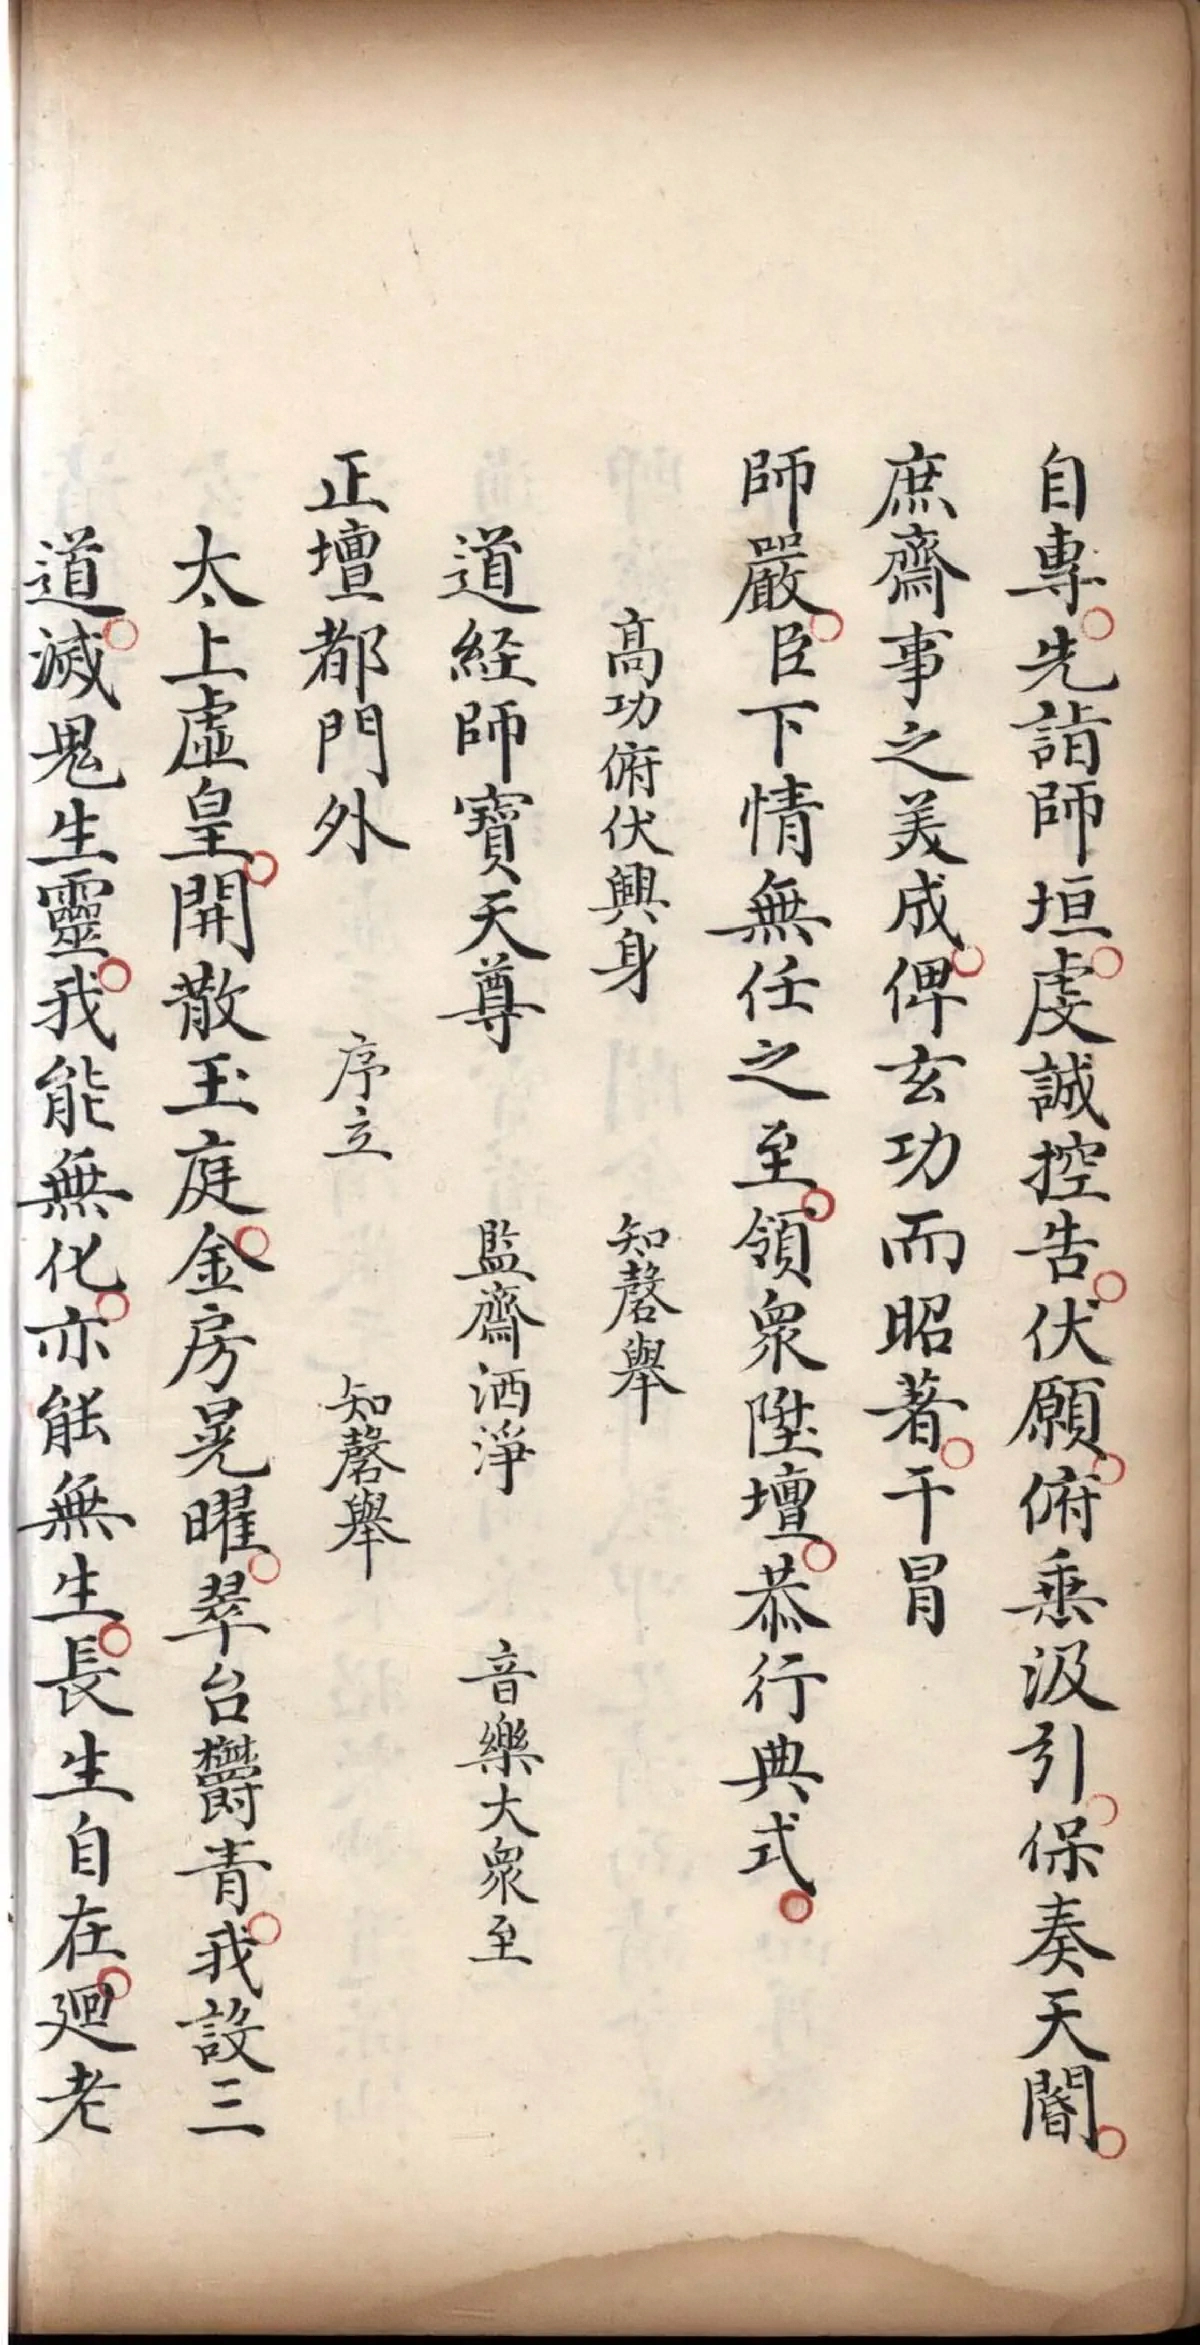 自專。先詣師垣。虔誠控告。伏願。俯垂汲引。保奏天閽。
庶齋事之美成。俾玄功而昭著。干冒
師嚴。臣下情無任之至。領眾陞壇。恭行典式。
高功俯伏興身 知磬舉
道經師寶天尊 監齋洒淨 音樂大眾至
正壇都門外 序立 知磬舉
太上虛皇。開散玉庭。金房晃曜。翠台欝青。我設三
道。滅鬼生靈。我能無化。亦能無生。長生自在。廻老